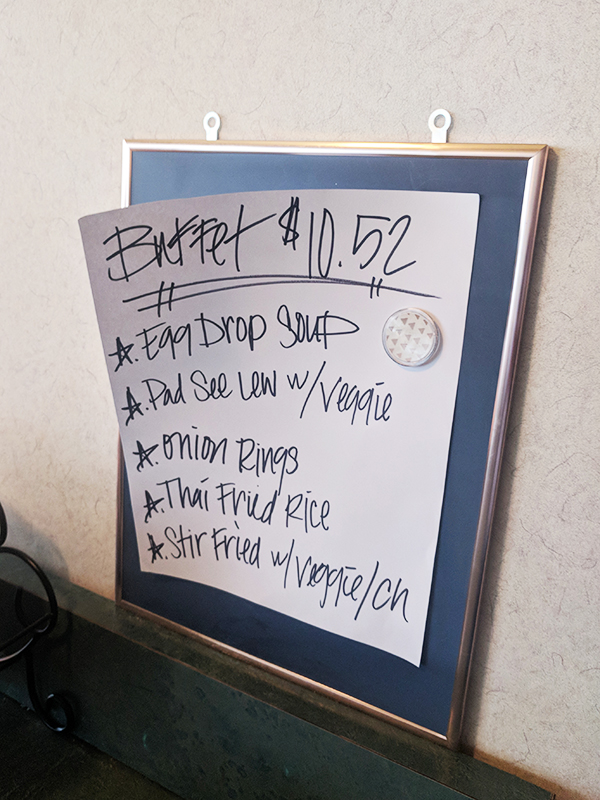 Buffet $10.52
☆. Egg Drop Soup
☆. Pad See Lew w/Veggie
☆. Onion Rings
☆. Thai Fried Rice
☆. Stir Fried w/Veggie/Ch